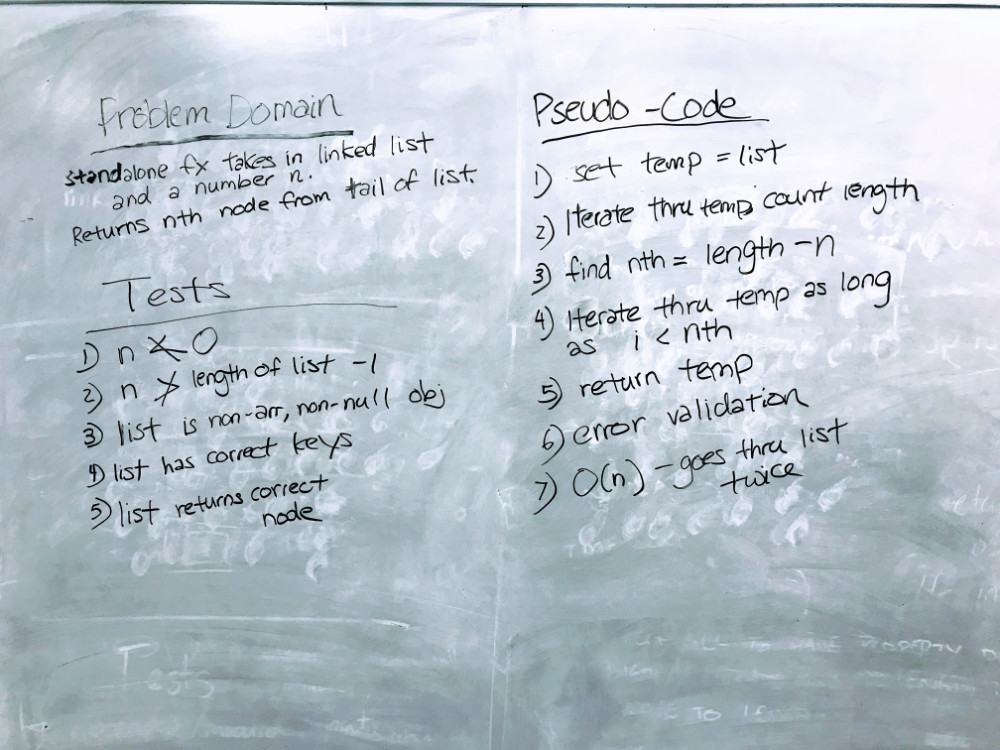 Problem Domain
standalone fx takes in linked list
and a number n.
Returns nth node from tail of list.
Tests
1) n ≮ 0
2) n ≯ length of list -1
3) list is non-arr, non-null obj
4) list has correct keys
5) list returns correct
node
Pseudo-Code
1) set temp = list
2) Iterate thru temp count length
3) find nth = length - n
4) Iterate thru temp as long
as i < nth
5) return temp
6) error validation
7) O(n) - goes thru list
twice